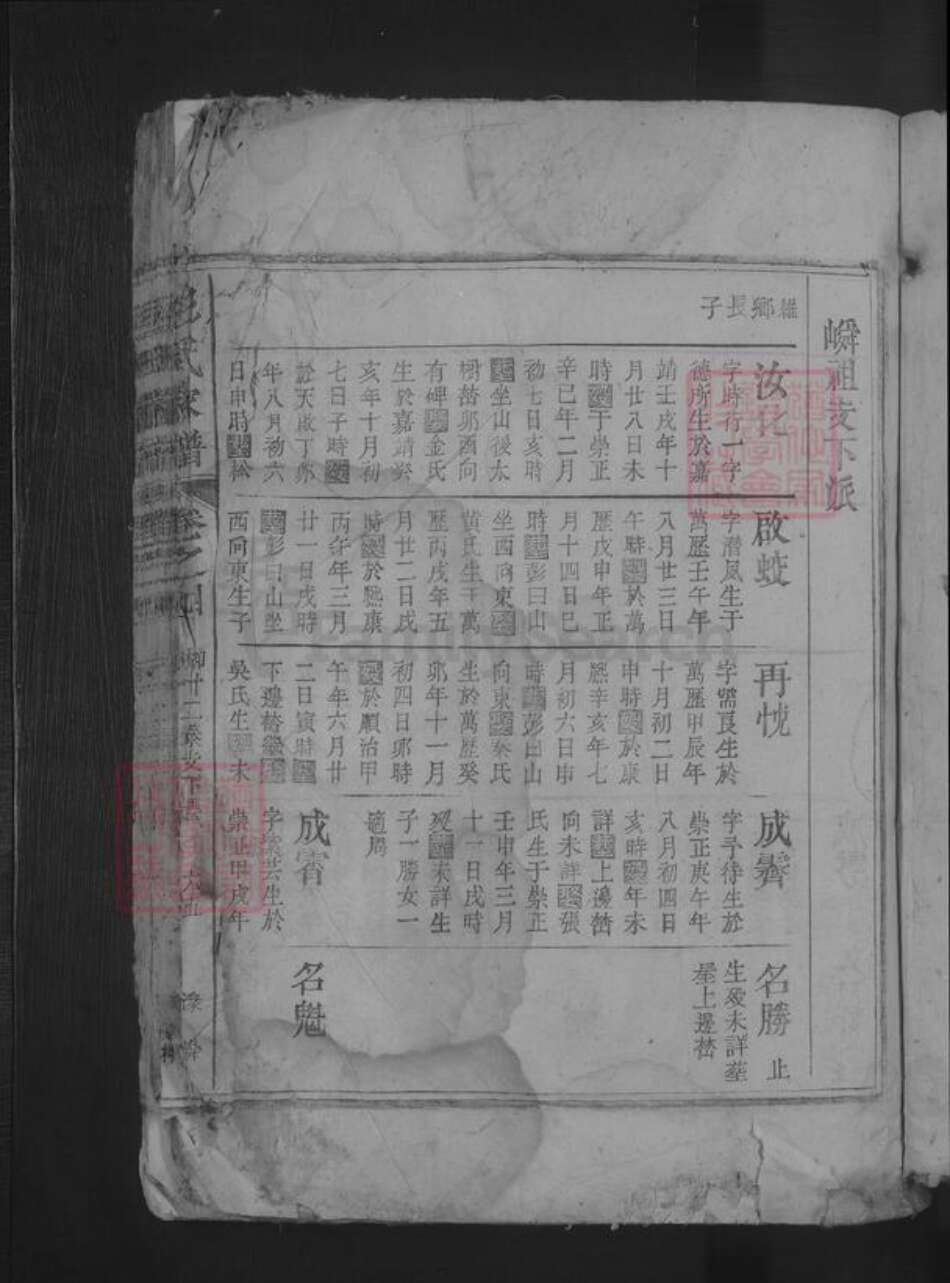 嶙祖支下派
雄鄉長子
汝
字時行一字
德所生於嘉
靖壬戌年十
月廿八日未
時歿于崇正
辛巳年二月
初七日亥時
葬坐山後太
樹嶅卯酉向
有碑娶金氏
生於嘉靖癸
亥年十月初
七日子時歿
於天啟丁卯
年八月初六
日申時葬松
啟蛟
字潛風生于
萬歷壬午年
八月廿三日
午時歿於萬
歷戊申年正
月十四日巳
時葬彭曰山
坐西向東娶
黃氏生于萬
歷丙戌年五
月廿二日戌
時歿於熙康
丙午年三月
廿一日戌時
葬彭曰山坐
西向東生子
再忱
字霱良生於
萬歷甲辰年
十月初二日
申時歿於康
熙辛亥年七
月初六日申
時葬彭曰山
向東娶蔡氏
生於萬歷癸
卯年十一月
初四日卯時
歿於順治甲
午年六月廿
二日寅時葬
下邊嶅繼娶
吳氏生歿未
成霽
字予待生於
崇正庚午年
八月初四日
亥時歿年未
詳葬上邊嶅
向未詳娶張
氏生于崇正
壬申年三月
十一日戌時
歿葬未詳生
子一勝女一
適周
成霄
字 芸生於
崇正甲戌年
名勝 止
生歿未詳葬
屋上邊嶅
名魁
氏家譜 卷之四